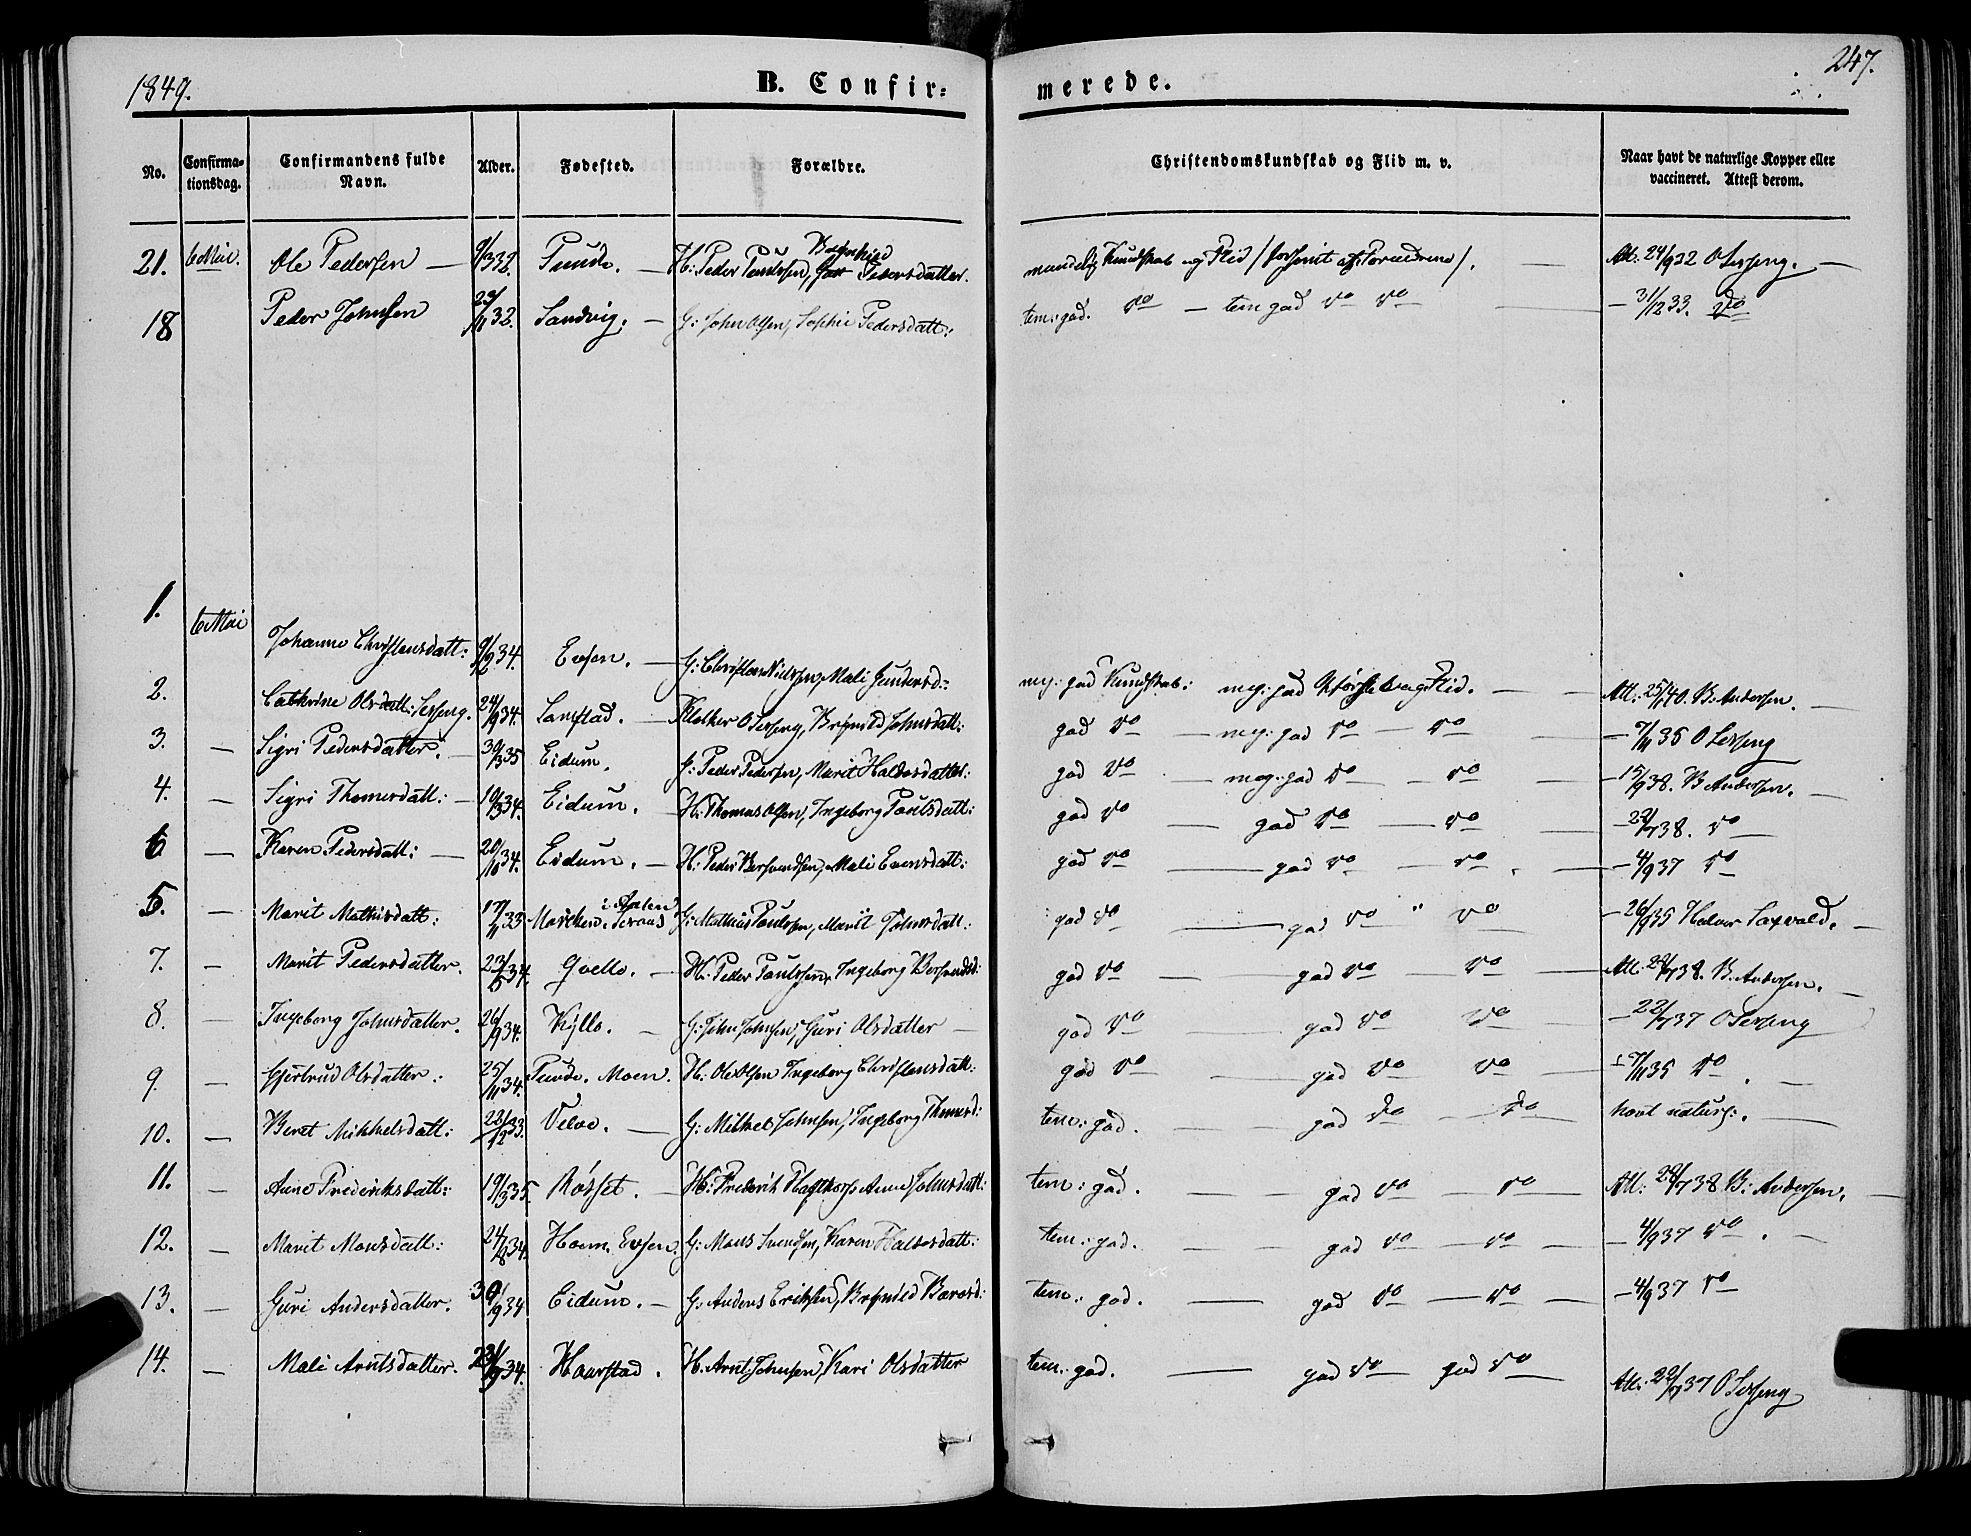 1849.
B. Confir=
merede.
247.
No. Confirma-tionsdag. Confirmandens fulde Navn. Alder. Fødested. Forældre. Christendomskundskab og Flid m. v. Naar havt de naturlige Kopper eller vaccineret. Attest derom.
21. 6 Mai. Ole Pedersen — 9/3 32. — H: Peder Paulssen, Brynhild Pedersdatter. maadelig Kundskab og Flid — Att. 24/9 32 O Lesseng. —
18 Peder Johnsen 32. Sandvig. — G: John Olsen, Sophie Pedersdatt: tem: god. do — tem god do do — — 31/12 33. do
1. 6 Mai Johanne Christensdatt: 9/9 34. Evjen. — G: Christen Nielssen, Mali Gundersd: meg: god Kundskab: meg: god Flid. — — Att: 25/ 40. B: Andersen. —
2. Cathrine Olsdatt: Lesseng. 24/9 34. Langstad. — Klokker O Lesseng, Brynild Johnsdatt: god do — meg: god do — do — 7/11 35 O Lesseng
3. — Sigri Pedersdatter. — 30/3 35 Eidum. Peder Pedersen, Marit Haldosdatter: god do — meg: god do — do — — 15/9 38. B Andersen. —
4. — Sigri Thomesdatt: — 19/3 34. Eidum. — H: Thomas Olsen, Ingeborg Paulsdatt: god do — god do — do — — 22/7 38. do
6 — Karen Pedersdatt: — 20/10 34. Eidum. — H: Peder Bersvendsen, Mali Evensdatt: god do — god do — do. — — 4/9 37 do
5. — Marit Mathisdatt: 17/11 33 i Aalen G: Mathias Paulssen, Marit Johnsdatt: god do — god do " do — 26/9 35 Halvor —
7. — Marit Pedersdatter. 23/ 34. Qvello. — H: Peder Paulssen, Ingeborg Bersvendsd: god do — god do — do — Att: 22/7 38. B. Andersen. —
8. — Ingeborg Johnsdatter. 26/9 34. Kyllo. — G: John Johnsen, Guri Olsdatter — god do god do do — 22/7 37 O Lesseng
9. — Gjertrud Olsdatter: 25/11 34. Moen. H: Ole Olsen Ingeborg Christensdatt: god do — god do do — 7/11 35 do. —
10. — Beret Mikkelsdatt: 22/12 33. Velve. — G: Mikkel Johnsen, Ingeborg Thomesd: tem: god. — — god do — do havt naturl:. —
11. — Anne Frederiksdatt: 19/3 35. Røsset. — H: Frederik Anne Johnsdatt: tem: god. — — god do — do — Att: 22/7 38 B: Andersen. —
12. — Marit Monsdatt: 24/8 34. Hoem, Evjen. G: Mons Svendsen, Karen Haldosdatt: tem: god. — — god do — do — — 4/9 37 do. —
13. — Guri Andersdatter. 30/9 34 Eidum. — G: Anders Eriksen, Brynild Baroesd: tem: god. — god do — do — — 4/9 37 do
14. — Mali Arntsdatter. 34. Haarstad. H: Arnt Johnsen, Kari Olsdatter tem: god. — god do god do Att: 22/7 37 O Lesseng